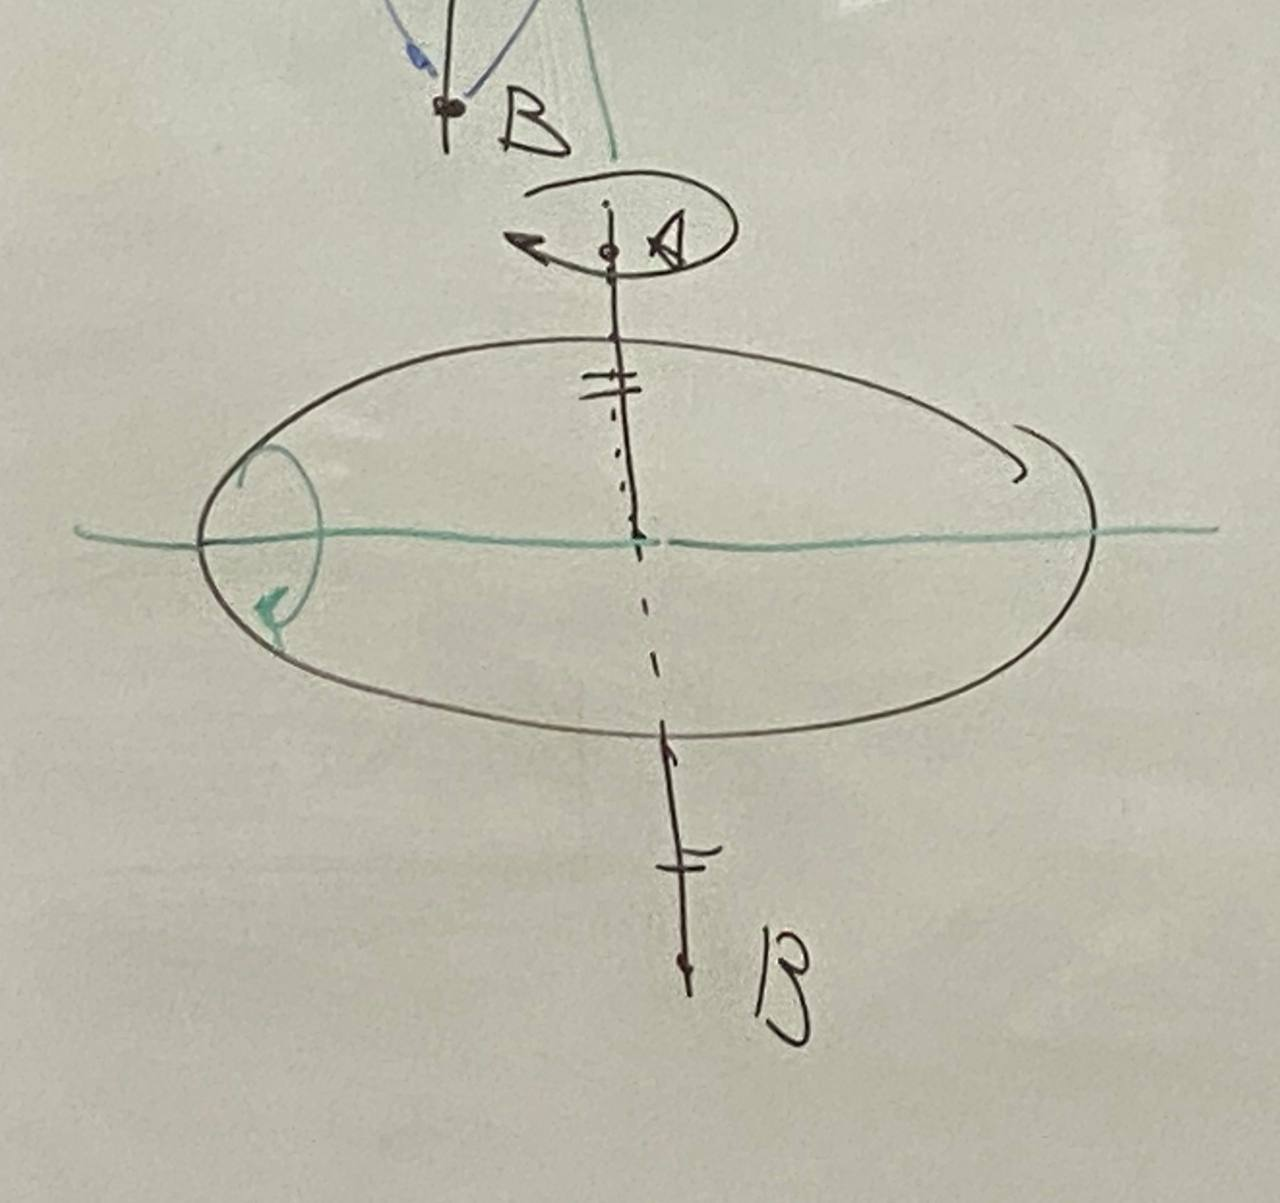 B
A
B